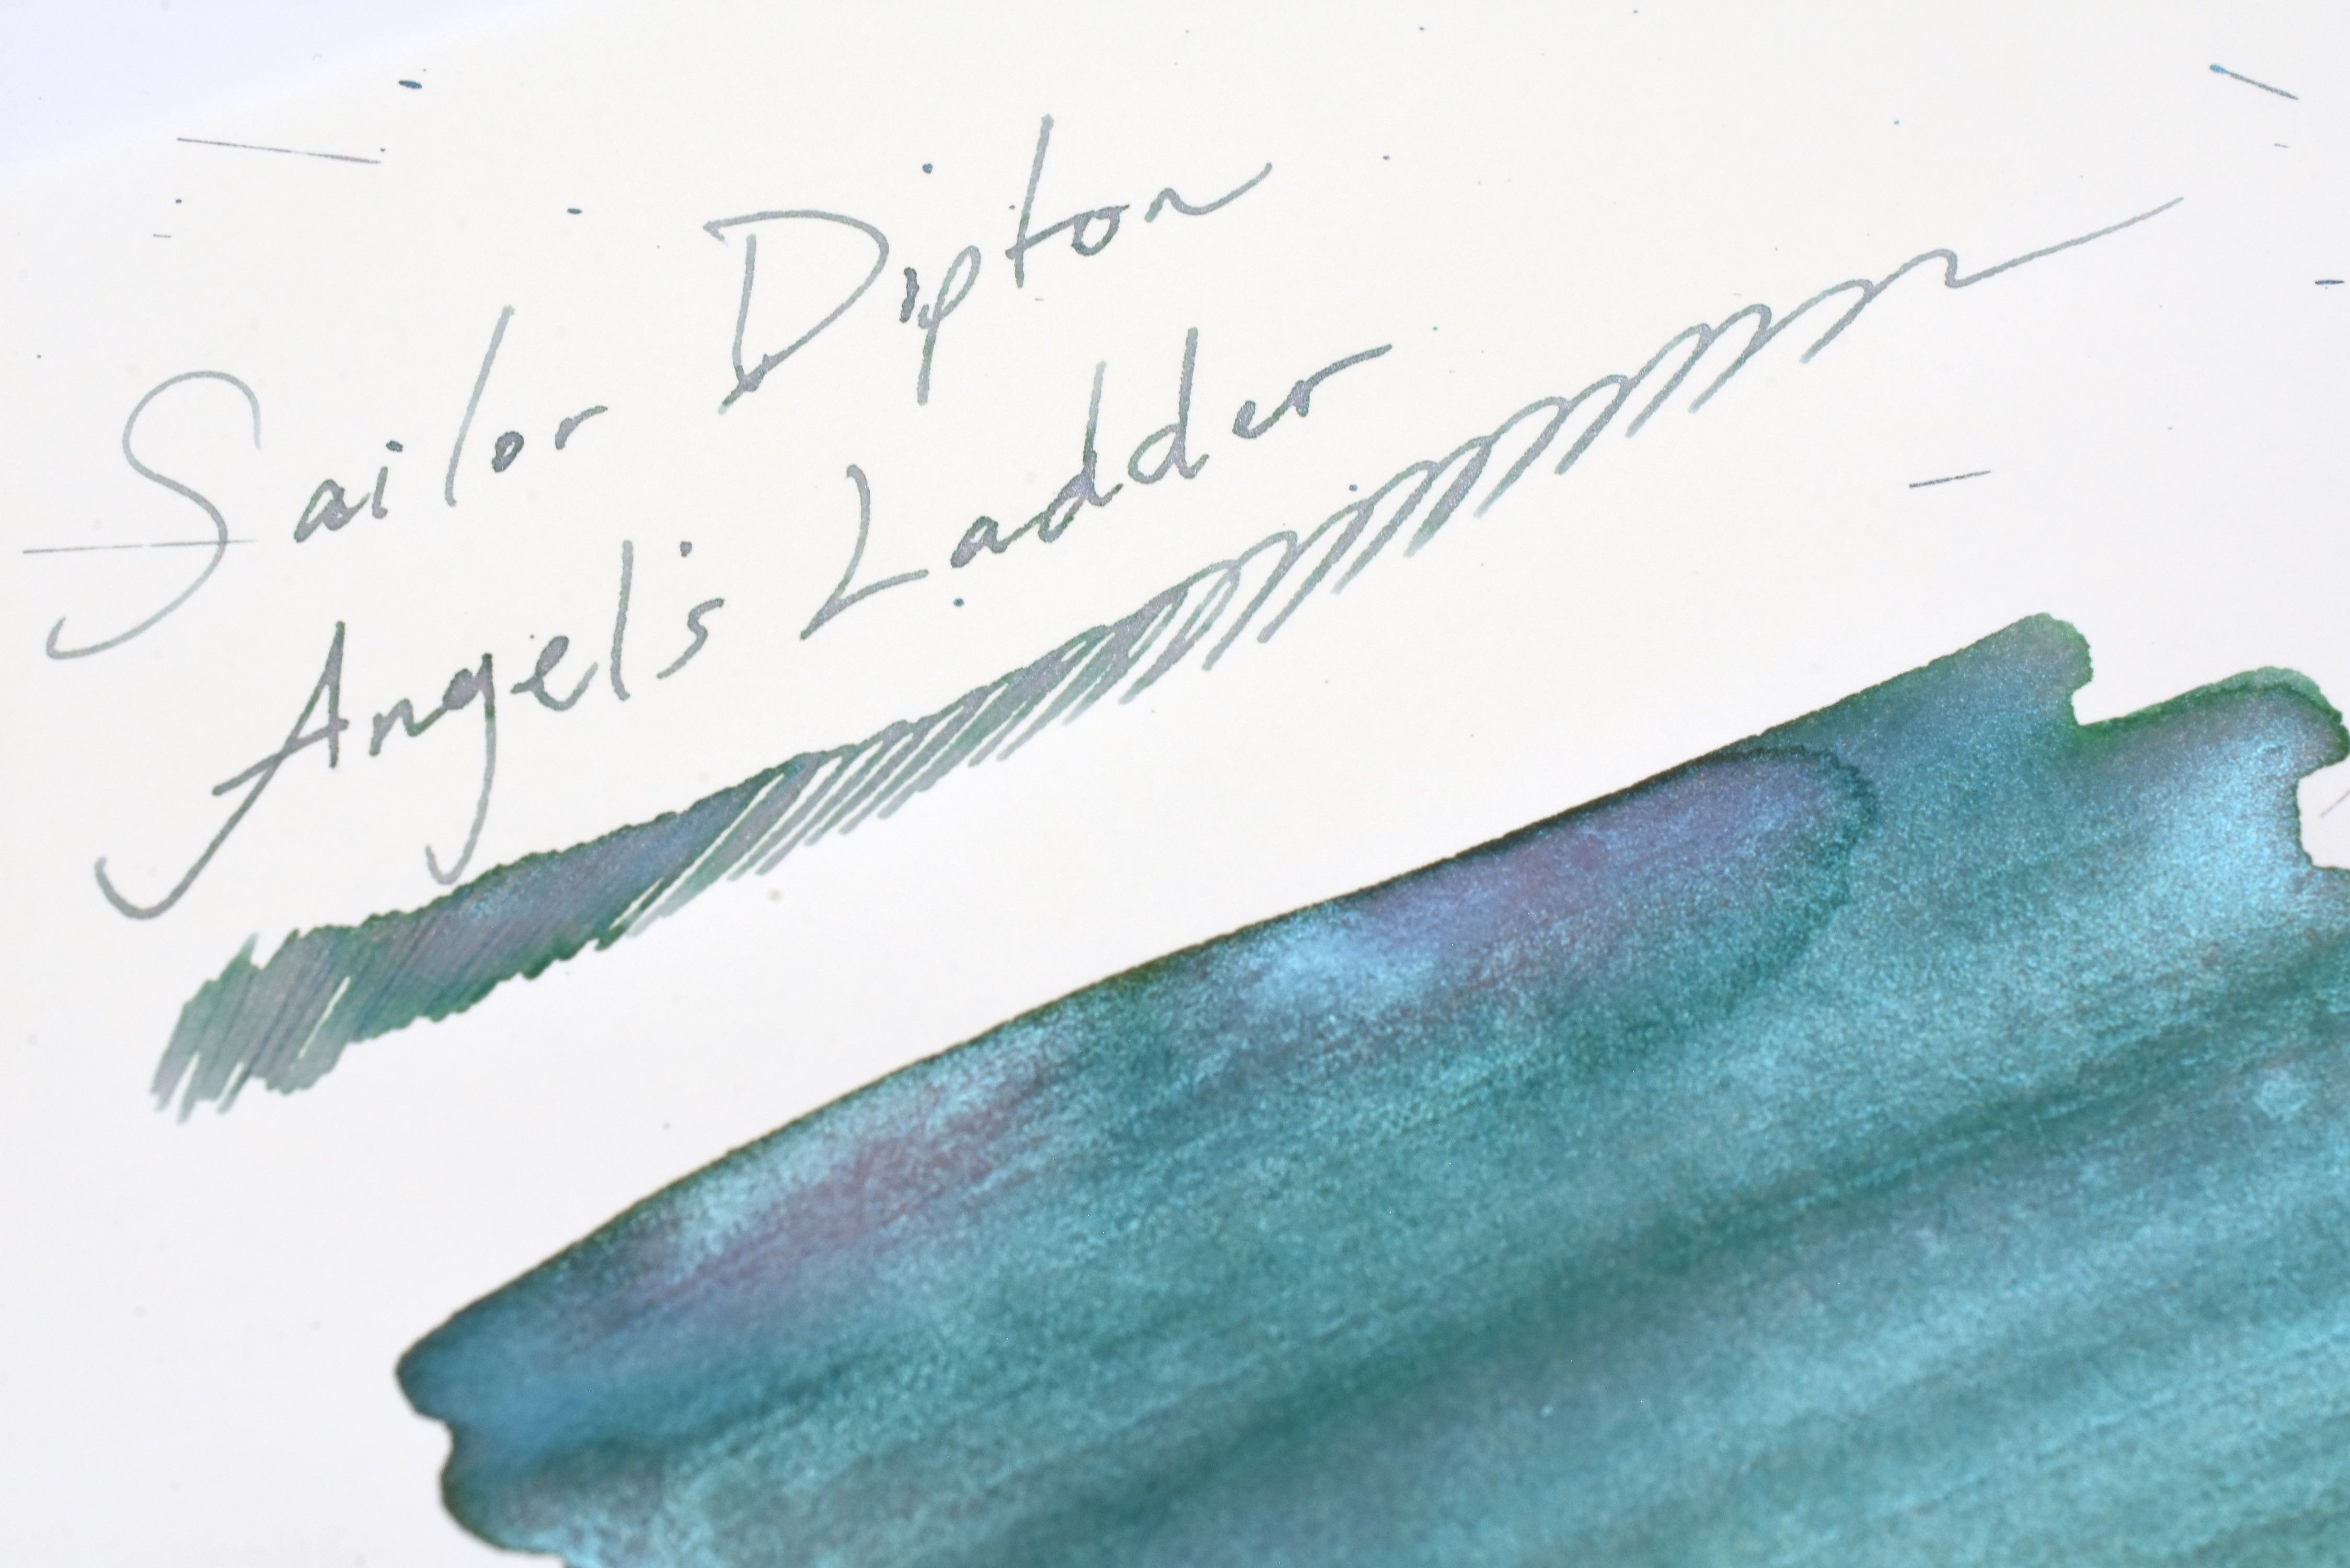 Sailor Dipton
Angel's Ladder